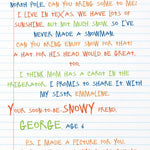 NORTH POLE. CAN YOU BRING SOME TO ME!
I LIVE IN TEXAS. WE HAVE LOTS OF
SUNSHINE BUT NOT MUCH SNOW SO I'VE
NEVER MADE A SNOWMAN.
CAN YOU BRING ENUFF SNOW FOR THAT!
A HAT FOR HIS HEAD WOULD BE GREAT,
TOO.
I THINK MOM HAS A CAROT IN THE
FREGERATOR. I PROMIS TO SHARE IT WITH
MY SISTR EMMALINE.
YOUR SOON-TO-BE SNOWY FREND,
GEORGE AGE 6
P.S. I MADE A PICTURE FOR YOU